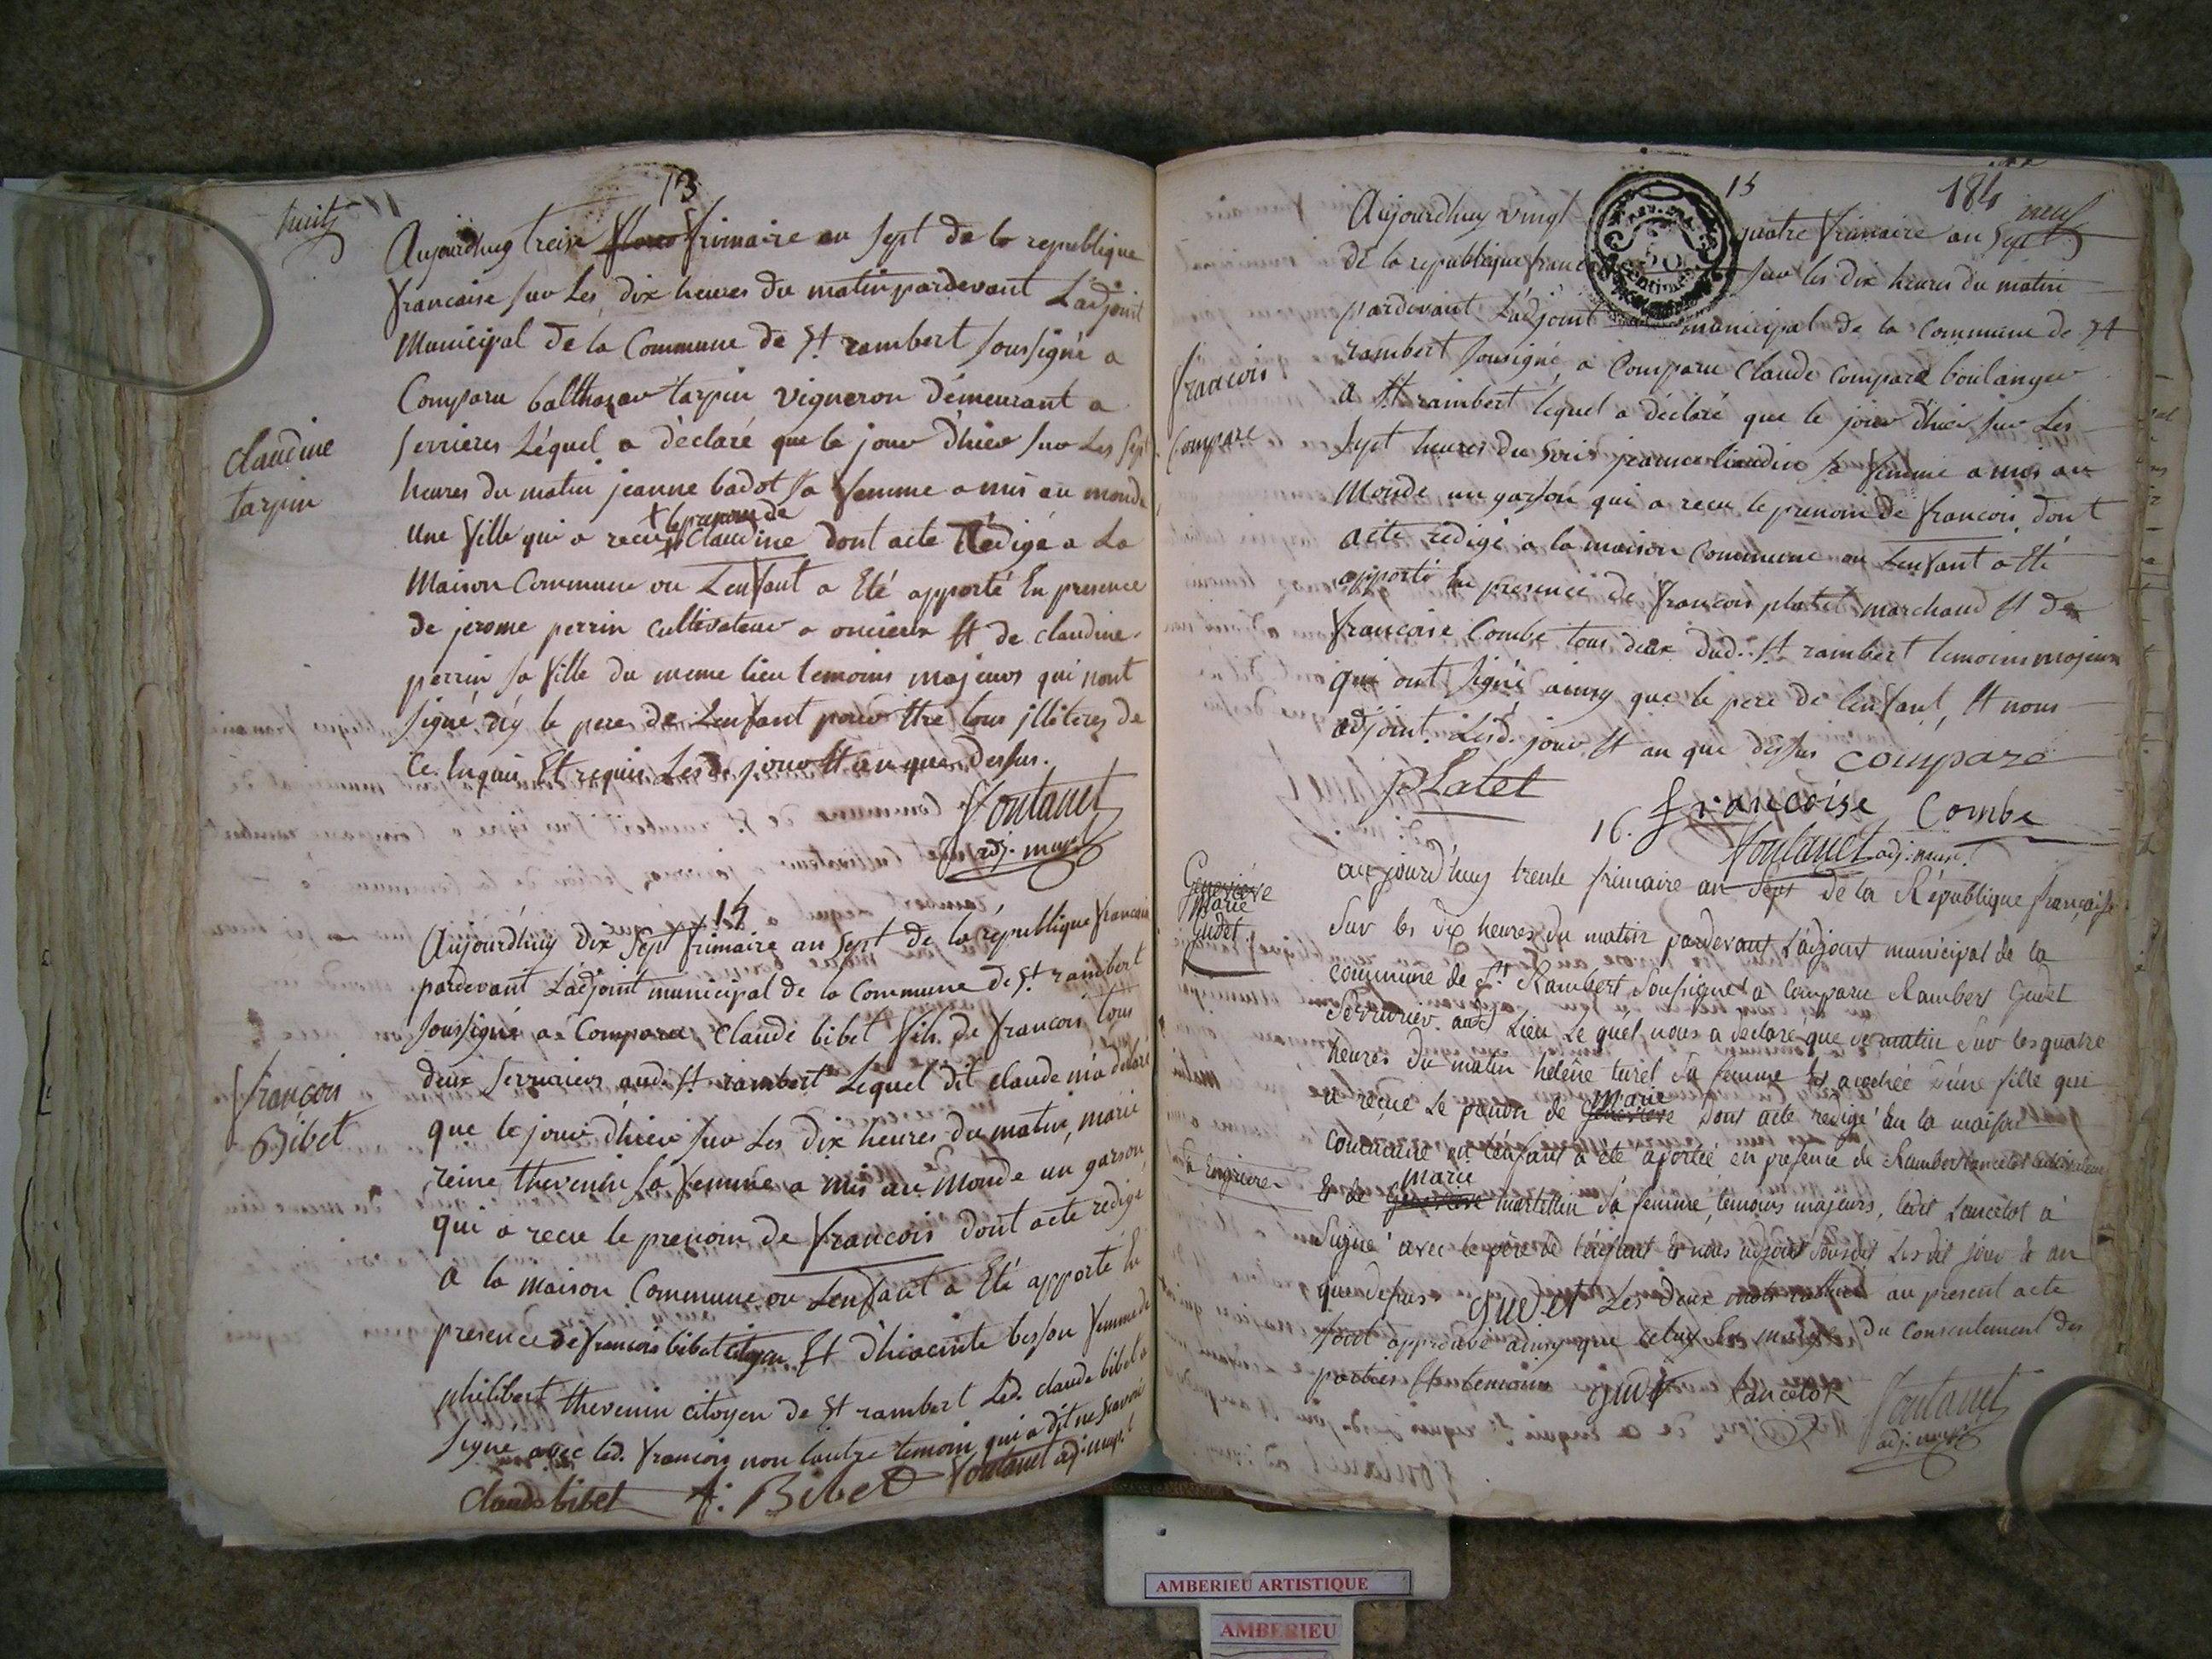 huit
13
Aujourdhuy treise frimaire an sept de la republique
francaise sur Les dix heures du matin pardevant L'adjoint
Municipal de la Commune de St rambert soussigné a
Comparu balthazar tarpin vigneron démeurant a
serrieres Léquel a déclaré que le jour d'hier sur Les sept
claudine
tarpin
heures du matin jeanne badot sa femme a mis au monde
une fille qui a recu + le prenom de claudine dont acte Rédigé a La
Maison Commune ou L'enfant a Eté apporté En presence
de jerome perrin cultivateur a oncieux Et de claudine
perrin sa fille du meme lieu temoins majeurs qui nont
signé n'y le pere de L'enfant pour Etre tous illiteres de
Ce Enquis Et requis Lesd. jour Et an que dessus.
Fontanet
adj. munpl
14
Aujourd'huy dix sept frimaire an sept de la république francaise
pardevant L'adjoint municipal de la Commune de St. rambert
soussigné a Comparu Claude bibet fils de francois tous
deux serruriers aud. St rambert Lequel dit claude m'a déclaré
francois
Bibet
que le jour d'hier sur Les dix heures du matin, marie
reine thevenin sa femme a mis au Monde un garson
qui a recu le prenom de francois dont acte redigé
a la maison Commune ou L'enfant a Eté apporté En
presence de francois bibet citoyen Et d'hiacinte besson femme de
philibert thevenin citoyen de St rambert Led. claude bibet a
signé avec led. francois non l'autre temoin qui a dit ne scavoir
claude bibet f. Bibet Fontanet adj. munpl
15
184
Aujourdhuy vingt quatre frimaire an sept neuf
de la republique franc sur les dix heures du matin
pardevant L'adjoint municipal de la Commune de St
rambert sousigné, a Comparu Claude Comparé boulanger
francois
Comparé
a St rambert lequel a déclaré que le jour d'hier sur Les
sept heures du soir sa femme a mis au
Monde un garson qui a recu le prenom de francois dont
acte redigé a la maison Commune ou L'enfant a Eté
apporté En presence de francois platet marchand Et de
francoise Combe tous deux dud. St rambert temoins majeurs
qui ont signé ainsy que le pere de l'enfant, Et nous
adjoint. Lesd. jour Et an que dessus comparé
pLatet
francoise Combe
16.
Fontanet adj. mun.
Genevieve
Marie
Gudet
aujourd'huy trente frimaire an Sept de la République française
Sur les dix heures du matin pardevant L'adjoint municipal de la
commune de St. Rambert Sousigné a comparu Rambert Gudet
Sérrurier aud. Lieu Le quel nous a déclaré que ce matin Sur les quatre
heures du matin hélène turel Sa femme accochée d'une fille qui
a reçue Le prenon de Genevieve Marie dont acte redigé en la maison
commune ou l'enfant a été aportée en présence de Rambert Lancelot
& de Genevieve marie martellin Sa femme, temoins majeurs, ledit Lancelot à
Signé avec le père de l'enfant & nous adjoint Lesdit jour & an
que desus gudet Les deux mots raturés au present acte
sont approuvé ainsy que celuy En marge du consentement des
parties Et temoins gudet Lancelot Fontanet
adj. munpl
AMBERIEU ARTISTIQUE
AMBERIEU